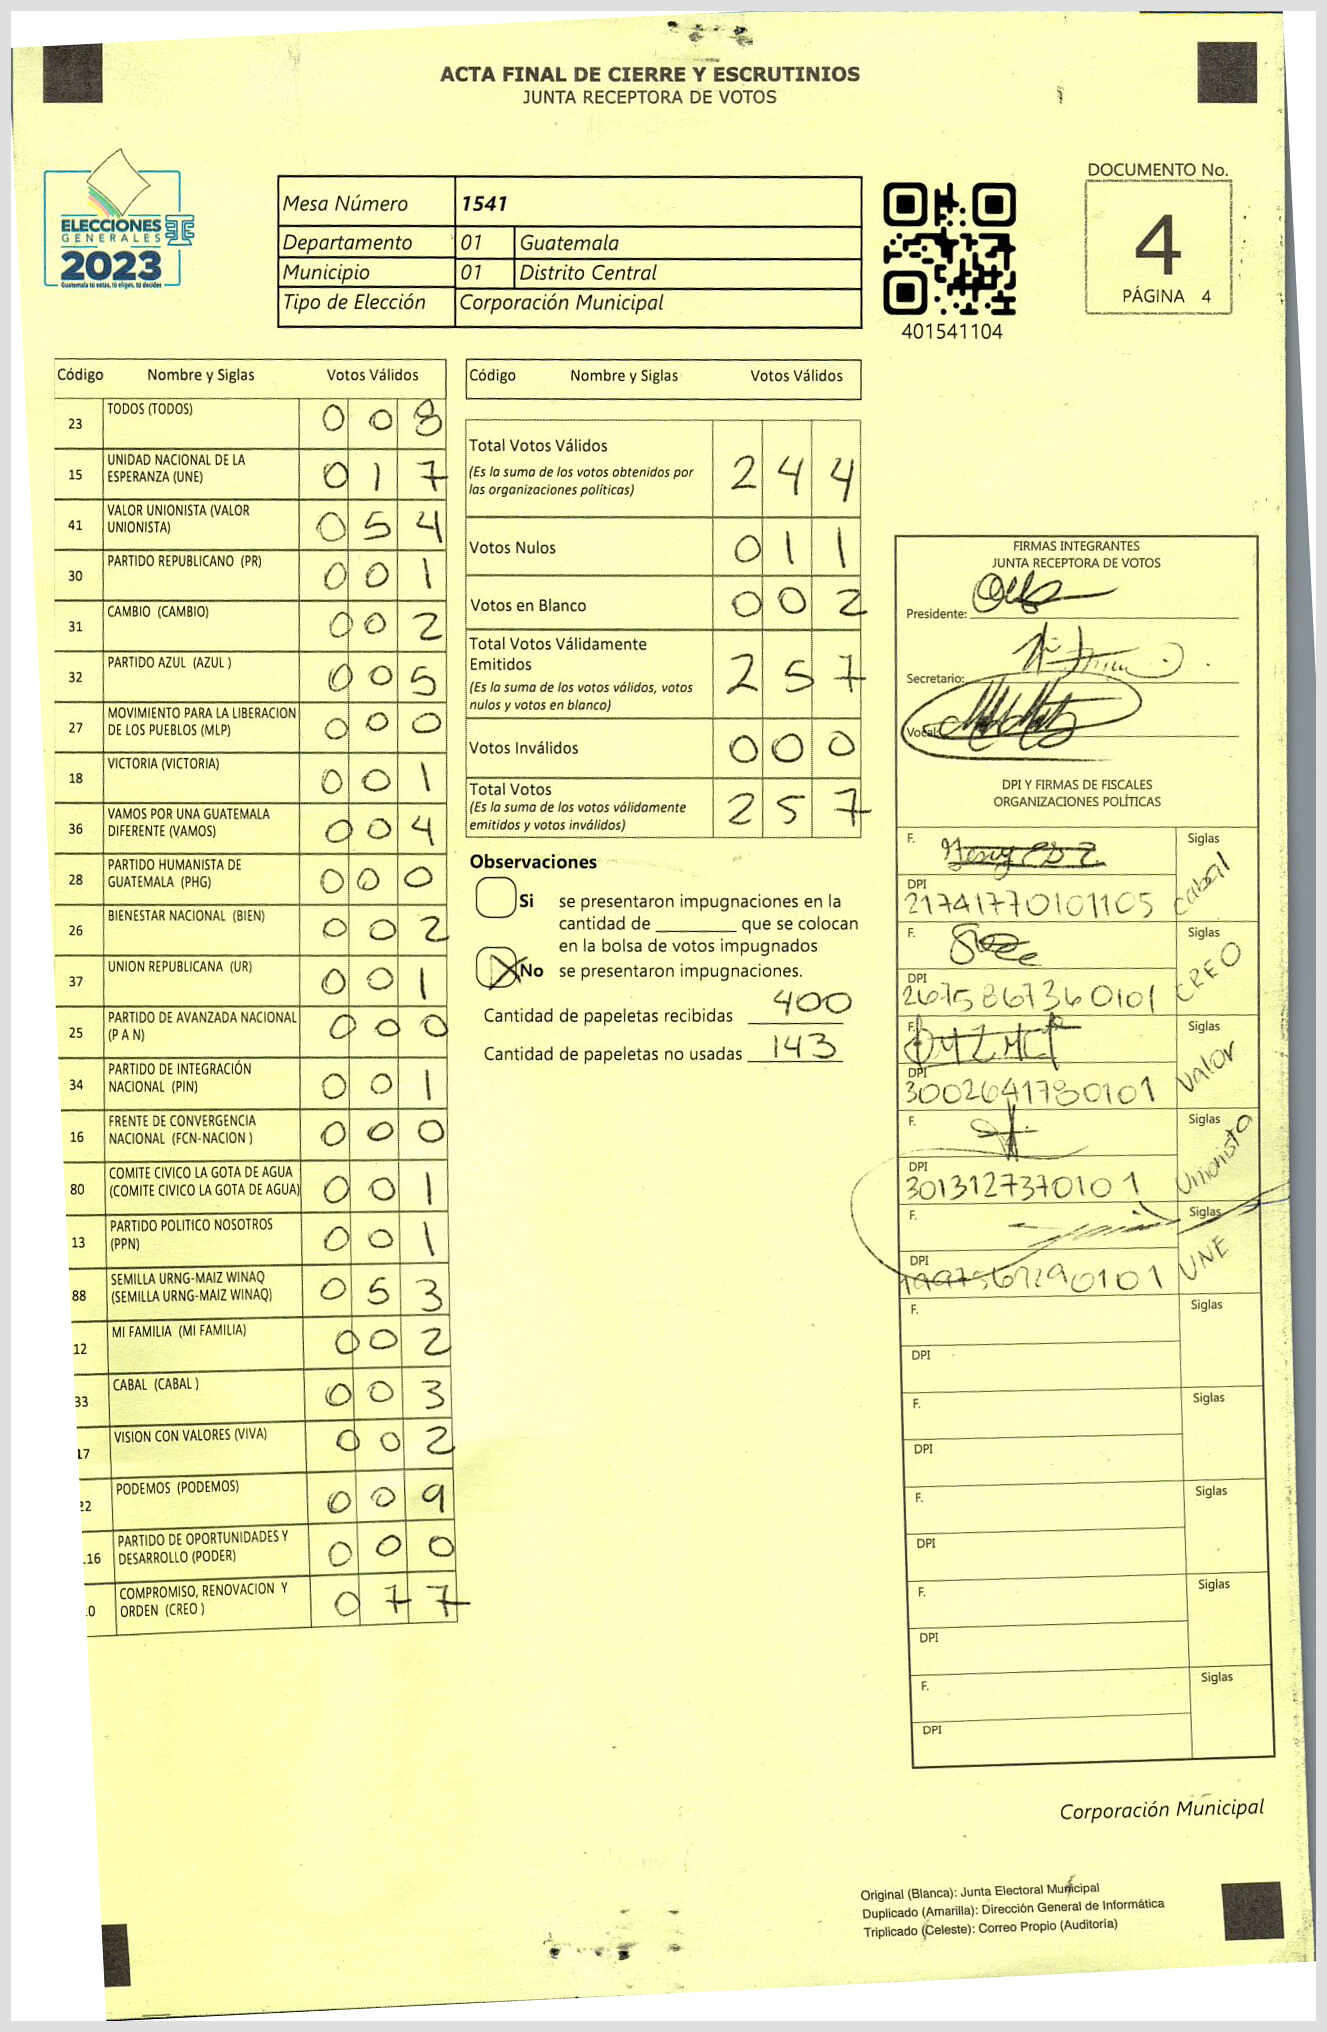 ACTA FINAL DE CIERRE Y ESCRUTINIOS
JUNTA RECEPTORA DE VOTOS
ELECCIONES
GENERALES
2023
Guatemala tú votas, tú eliges, tú decides
Mesa Número 1541
Departamento 01 Guatemala
Municipio 01 Distrito Central
Tipo de Elección Corporación Municipal
401541104
DOCUMENTO No.
4
PÁGINA 4
Código Nombre y Siglas Votos Válidos
23 TODOS (TODOS) 0 0 8
15 UNIDAD NACIONAL DE LA
ESPERANZA (UNE) 0 1 7
41 VALOR UNIONISTA (VALOR
UNIONISTA) 0 5 4
30 PARTIDO REPUBLICANO (PR) 0 0 1
31 CAMBIO (CAMBIO) 0 0 2
32 PARTIDO AZUL (AZUL ) 0 0 5
27 MOVIMIENTO PARA LA LIBERACION
DE LOS PUEBLOS (MLP) 0 0 0
18 VICTORIA (VICTORIA) 0 0 1
36 VAMOS POR UNA GUATEMALA
DIFERENTE (VAMOS) 0 0 4
28 PARTIDO HUMANISTA DE
GUATEMALA (PHG) 0 0 0
26 BIENESTAR NACIONAL (BIEN) 0 0 2
37 UNION REPUBLICANA (UR) 0 0 1
25 PARTIDO DE AVANZADA NACIONAL
(P A N) 0 0 0
34 PARTIDO DE INTEGRACIÓN
NACIONAL (PIN) 0 0 1
16 FRENTE DE CONVERGENCIA
NACIONAL (FCN-NACION ) 0 0 0
80 COMITE CIVICO LA GOTA DE AGUA
(COMITE CIVICO LA GOTA DE AGUA) 0 0 1
13 PARTIDO POLITICO NOSOTROS
(PPN) 0 0 1
88 SEMILLA URNG-MAIZ WINAQ
(SEMILLA URNG-MAIZ WINAQ) 0 5 3
12 MI FAMILIA (MI FAMILIA) 0 0 2
33 CABAL (CABAL ) 0 0 3
17 VISION CON VALORES (VIVA) 0 0 2
22 PODEMOS (PODEMOS) 0 0 9
16 PARTIDO DE OPORTUNIDADES Y
DESARROLLO (PODER) 0 0 0
0 COMPROMISO, RENOVACION Y
ORDEN (CREO ) 0 7 7
Código Nombre y Siglas Votos Válidos
Total Votos Válidos
(Es la suma de los votos obtenidos por
las organizaciones políticas) 2 4 4
Votos Nulos 0 1 1
Votos en Blanco 0 0 2
Total Votos Válidamente
Emitidos
(Es la suma de los votos válidos, votos
nulos y votos en blanco) 2 5 7
Votos Inválidos 0 0 0
Total Votos
(Es la suma de los votos válidamente
emitidos y votos inválidos) 2 5 7
Observaciones
Si se presentaron impugnaciones en la
cantidad de ________ que se colocan
en la bolsa de votos impugnados
No se presentaron impugnaciones.
Cantidad de papeletas recibidas 400
Cantidad de papeletas no usadas 143
FIRMAS INTEGRANTES
JUNTA RECEPTORA DE VOTOS
Presidente:
Secretario:
Vocal:
DPI Y FIRMAS DE FISCALES
ORGANIZACIONES POLÍTICAS
F. Siglas
DPI
21741770101105 cabal
F. Siglas
DPI
2675867360101 CREO
F. Siglas
DPI
3002641780101 Valor
F. Siglas
DPI
3013127370101 Unionista
F. Siglas
DPI
UNE
F. Siglas
DPI
F. Siglas
DPI
F. Siglas
DPI
F. Siglas
DPI
F. Siglas
DPI
Corporación Municipal
Original (Blanca): Junta Electoral Municipal
Duplicado (Amarilla): Dirección General de Informática
Triplicado (Celeste): Correo Propio (Auditoría)